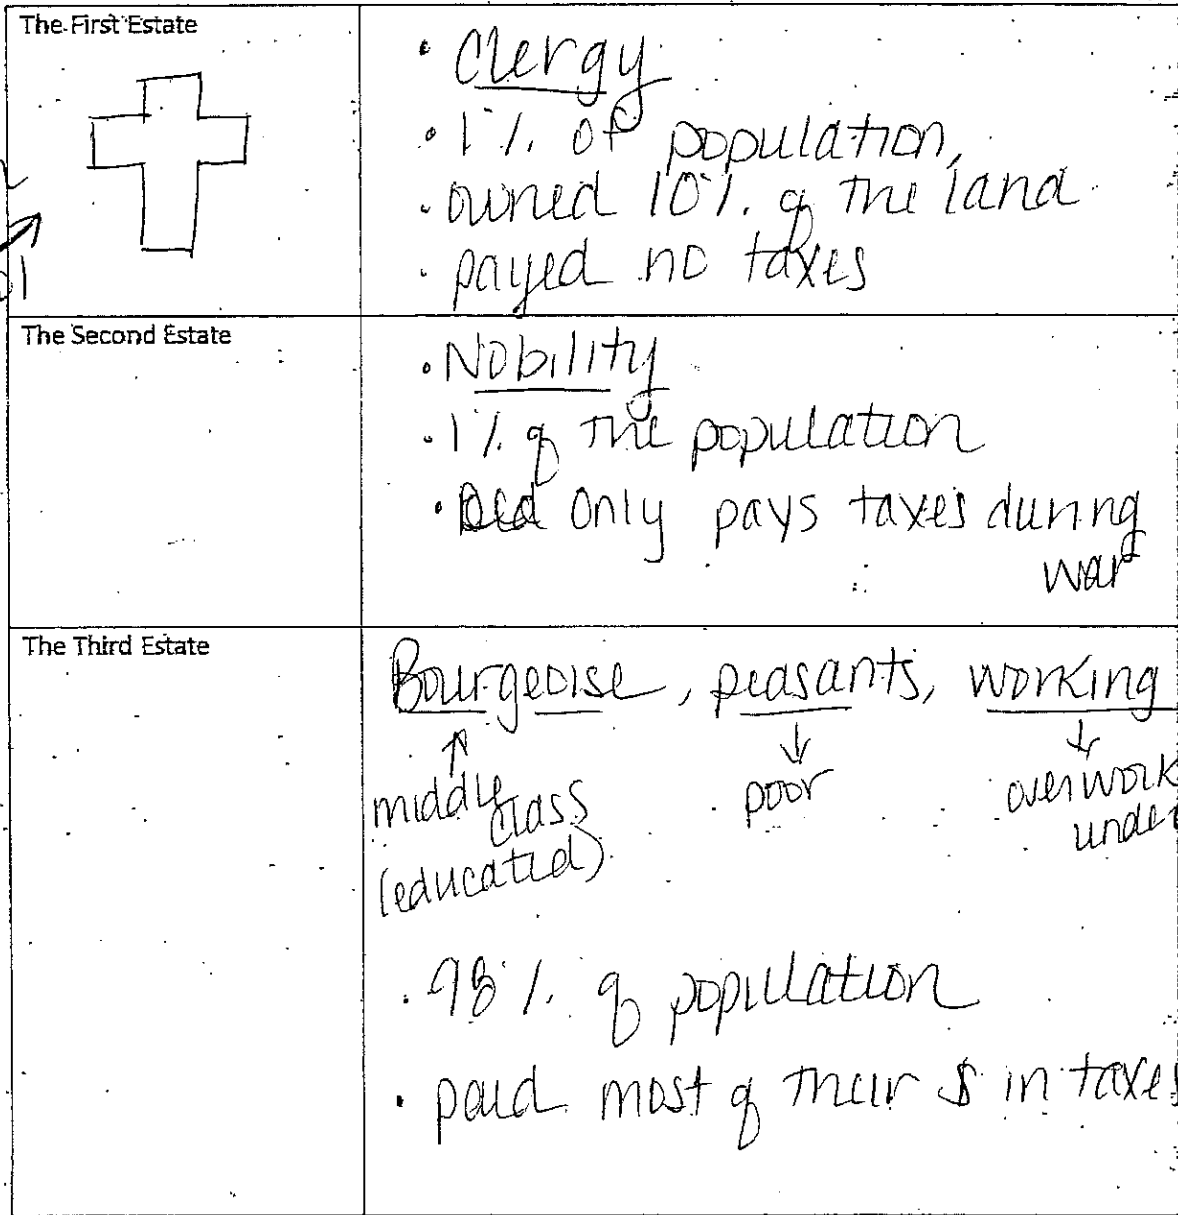 The First Estate
• Clergy
• 1% of population,
• owned 10% of the land
• payed no taxes
The Second Estate
• Nobility
• 1% of the population
• only pays taxes during
war
The Third Estate
Bourgeoise, peasants, working
middle class
(educated)
poor
overwork
under
• 98% of population
• paid most of their $ in taxes